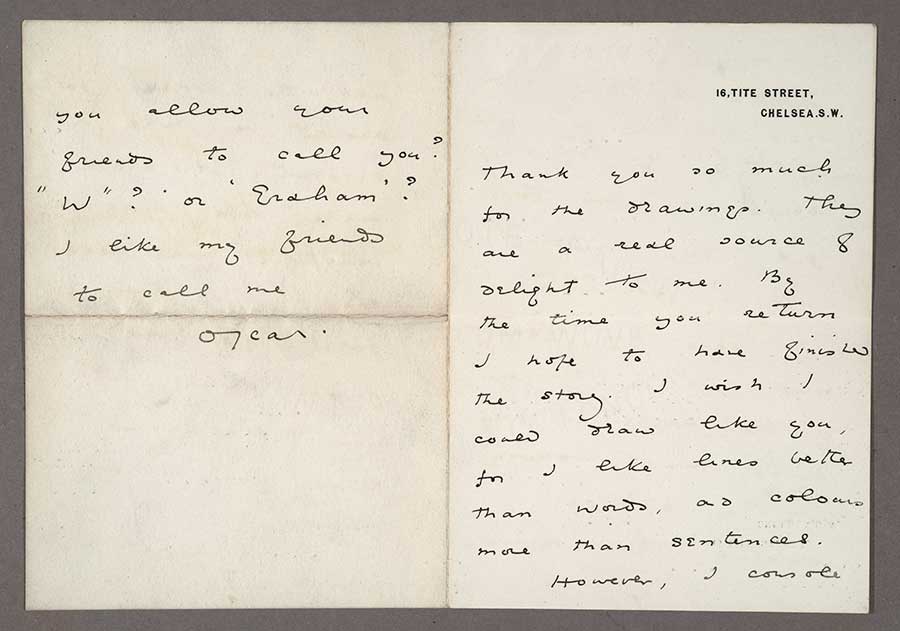 16, TITE STREET,
CHELSEA. S.W.
Thank you so much
for the drawings. They
are a real source of
delight to me. By
the time you return
I hope to have finished
the story. I wish I
could draw like you,
for I like lines better
than words, and colours
more than sentences.
However, I console
you allow your
friends to call you?
"W"? or 'Graham'?
I like my friends
to call me
Oscar.